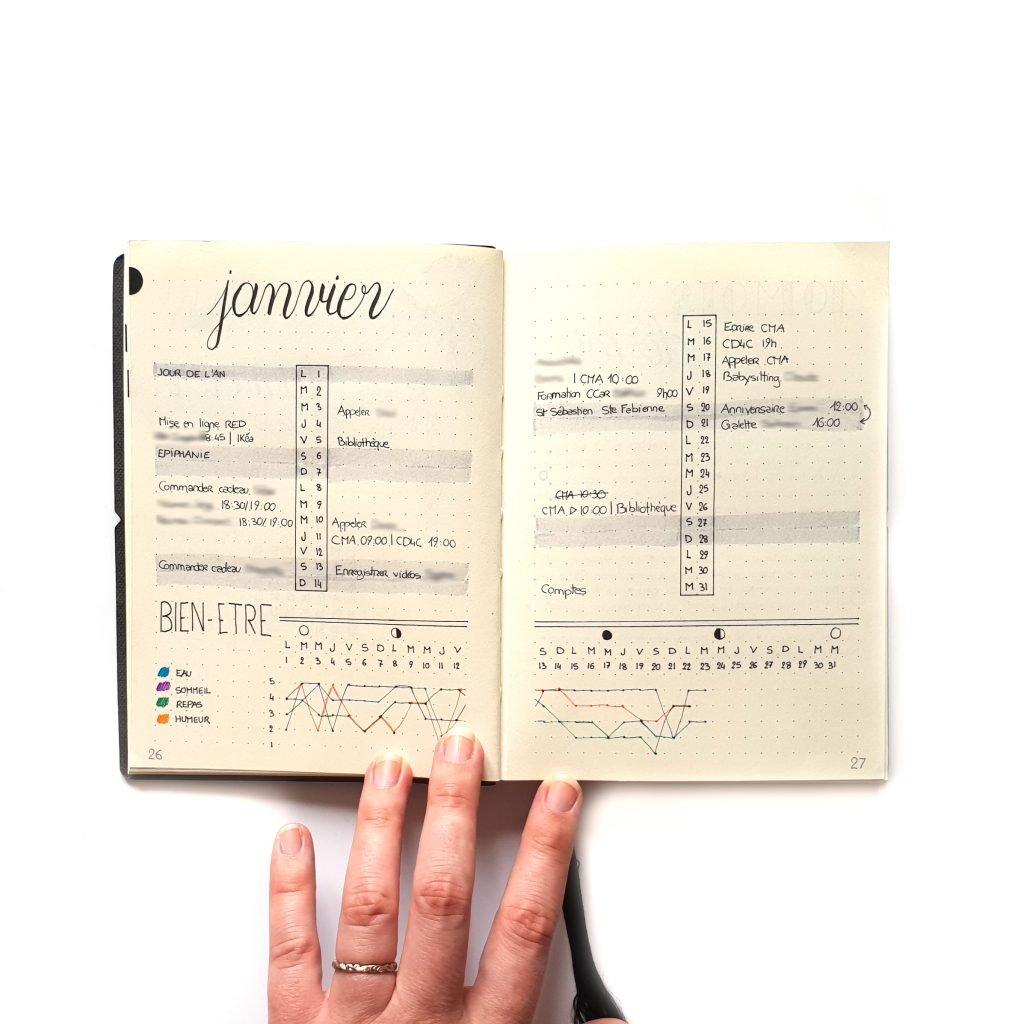 janvier
JOUR DE L'AN L 1
M 2
M 3 Appeler
Mise en ligne RED J 4
8:45 | IKéa V 5 Bibliothèque
EPIPHANIE S 6
D 7
Commander cadeau L 8
18:30/19:00 M 9
18:30/19:00 M 10 Appeler
J 11 CMA 09:00 | CD4C 19:00
V 12
Commander cadeau S 13 Enregistrer vidéos
D 14
BIEN-ETRE
L M M J V S D L M M J V
1 2 3 4 5 6 7 8 9 10 11 12
EAU
SOMMEIL
REPAS
HUMEUR
5
4
3
2
1
26
L 15 Ecrire CMA
M 16 CD4C 19h
M 17 Appeler CMA
| CMA 10:00 J 18 Babysitting
Formation CCar 9h00 V 19
St Sébastien Ste Fabienne S 20 Anniversaire 12:00
D 21 Galette 16:00
L 22
M 23
M 24
CMA 10:30 J 25
CMA ▷ 10:00 | Bibliothèque V 26
S 27
D 28
L 29
M 30
Comptes M 31
S D L M M J V S D L M M J V S D L M M
13 14 15 16 17 18 19 20 21 22 23 24 25 26 27 28 29 30 31
27